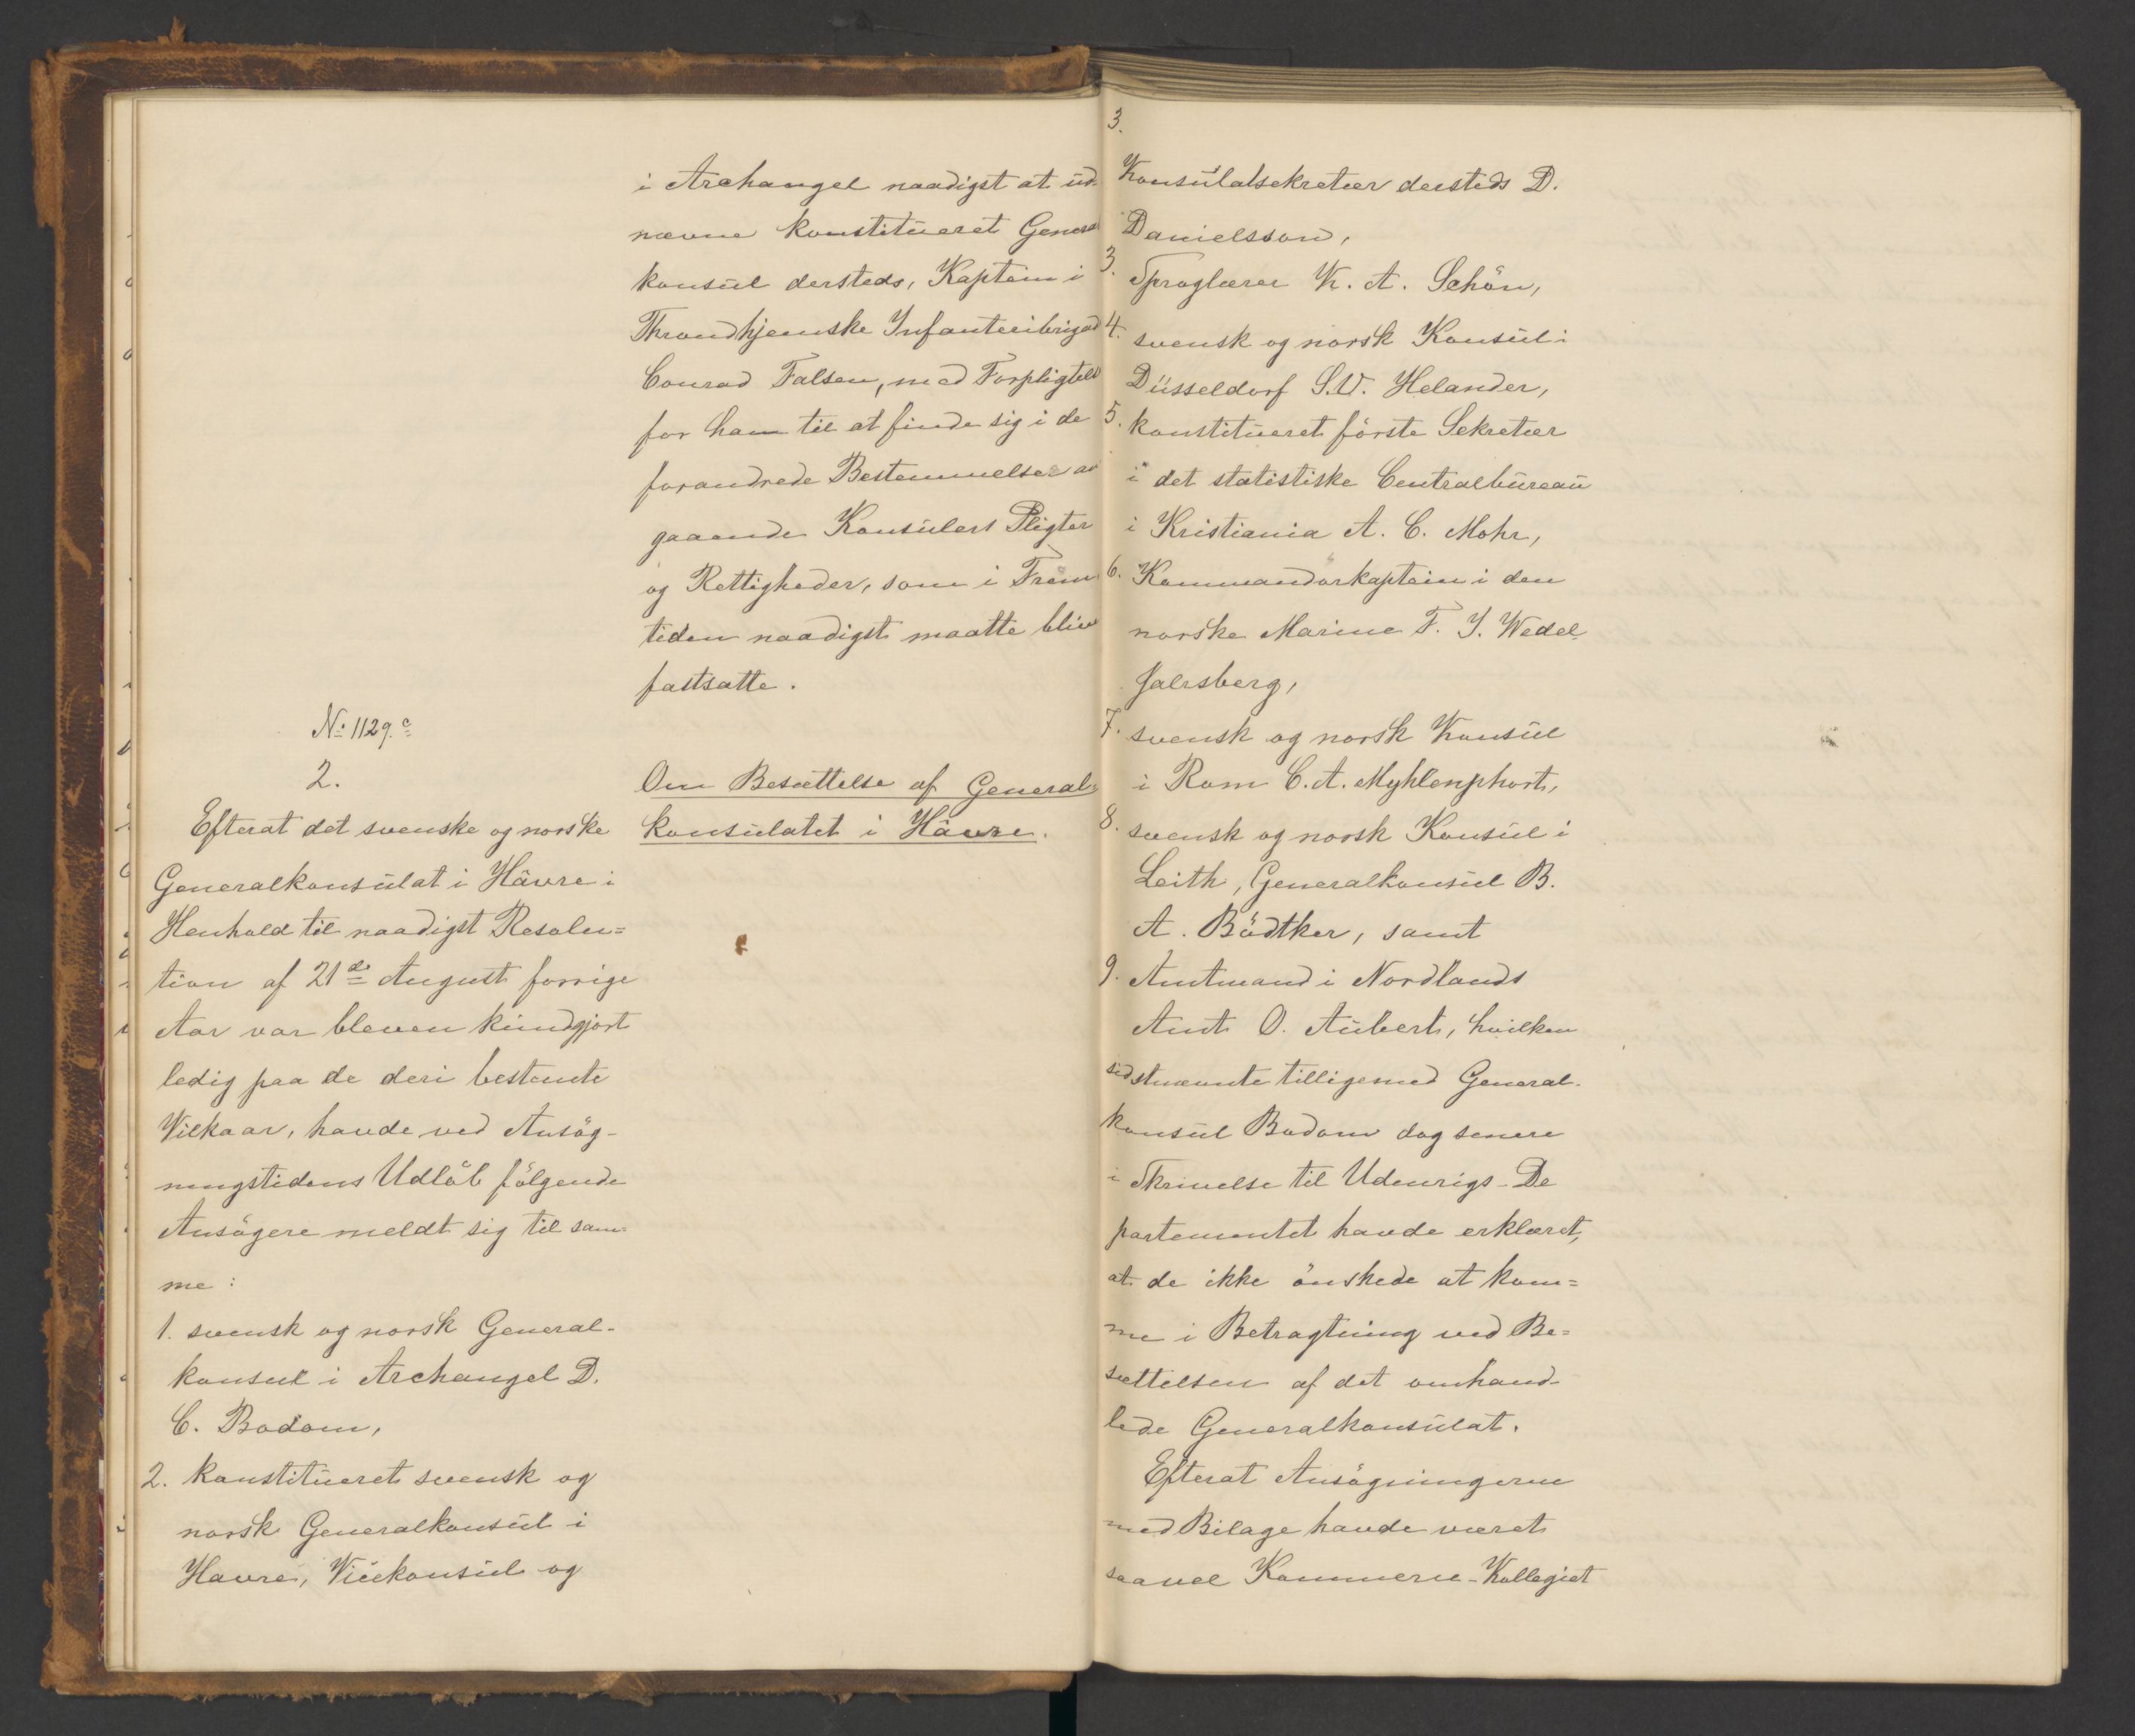 i Archangel naadigst at ud-
nævne konstitueret General
konsul dersteds, Kaptein i
Throndhjemske Infanteribrigad
Conrad Falsen, med Forpligtels
for ham til at finde sig i de
forandrede Bestemmelser an
gaaende Konsulers Pligter
og Rettigheder, som i Frem
tiden naadigst maatte blive
fastsatte.
No 1129.c
2.
Om Besættelse af General-
konsulatet i Hâvre.
Efterat det svenske og norske
Generalkonsulat i Hâvre i
Henhold til naadigst Resolu=
tion af 21de August forrige
Aar var bleven kundgjort
ledig paa de deri bestemte
Vilkaar, havde ved Ansög-
ningstidens Udlöb fölgende
Ansögere meldt sig til sam-
me:
1. svensk og norsk General-
konsul i Archangel D.
C. Bödom,
2. konstitueret svensk og
norsk Generalkonsul i
Havre, Vicekonsul og
3.
Konsulatsekretær dersteds D.
Danielsson,
3. Sproglærer K. A. Schön,
4. svensk og norsk Konsul i
Düsseldorf S.W. Helander,
5. konstitueret förste Sekretær
i det statistiske Centralbureau
i Kristiania A. C. Mohr,
6. Kommandörkaptein i den
norske Marine F. J. Wedel-
Jalrsberg,
7. svensk og norsk Konsul
i Rom C. A. Myhlenphort,
8. svensk og norsk Konsul i
Leith, Generalkonsul B.
A. Bödtker, samt
9. Amtmand i Nordlands
Amt O. Aubert, hvilken
sidstnævnte tilligemed General-
konsul Bodom dog senere
i Skrivelse til Udenrigs-De
partementet havde erklæret,
at de ikke önskede at kom=
me i Betragtning ved Be=
sættelsen af det omhand-
lede Generalkonsulat.
Efterat Ansögningerne
med Bilage havde været
saavel Kommerce-Kollegiet